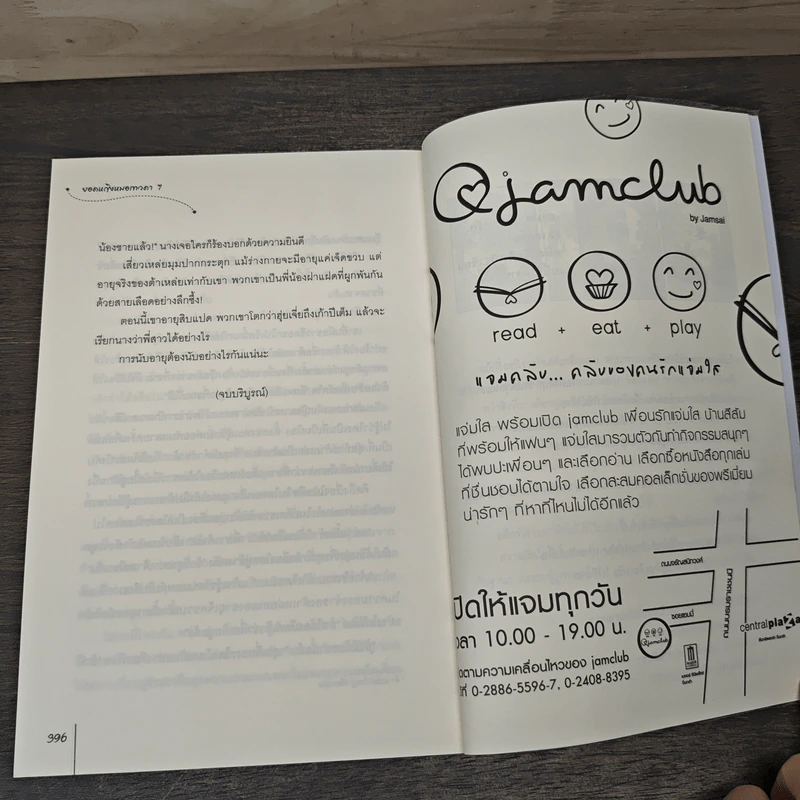 ยอดหญิงหมอเทวดา 7
น้องชายแล้ว!" นางเจอใครก็ร้องบอกด้วยความยินดี
เสี่ยวเหล่ยมุมปากกระตุก แม้ร่างกายจะมีอายุแค่เจ็ดขวบ แต่
อายุจริงของต้าเหล่ยเท่ากับเขา พวกเขาเป็นพี่น้องฝาแฝดที่ผูกพันกัน
ด้วยสายเลือดอย่างลึกซึ้ง!
ตอนนี้เขาอายุสิบแปด พวกเขาโตกว่าฮุ่ยเจี่ยถึงเก้าปีเต็ม แล้วจะ
เรียกนางว่าพี่สาวได้อย่างไร
การนับอายุต้องนับอย่างไรกันแน่นะ
(จบบริบูรณ์)
396
@jamclub
by Jamsai
read + eat + play
แจมคลับ... คลับของคนรักแจ่มใส
แจ่มใส พร้อมเปิด jamclub เพื่อนรักแจ่มใส บ้านสีส้ม
ที่พร้อมให้แฟนๆ แจ่มใสมารวมตัวกันทำกิจกรรมสนุกๆ
ได้พบปะเพื่อนๆ และเลือกอ่าน เลือกซื้อหนังสือทุกเล่ม
ที่ชื่นชอบได้ตามใจ เลือกสะสมคอลเล็กชั่นของพรีเมี่ยม
น่ารักๆ ที่หาที่ไหนไม่ได้อีกแล้ว
ปิดให้แจมทุกวัน
วลา 10.00 - 19.00 น.
ตามความเคลื่อนไหวของ jamclub
ที่ 0-2886-5596-7, 0-2408-8395
ถนนจรัญสนิทวงศ์
ซอยแฮมมี่
@jamclub
ถนนบรมราชชนนี
centralplaza